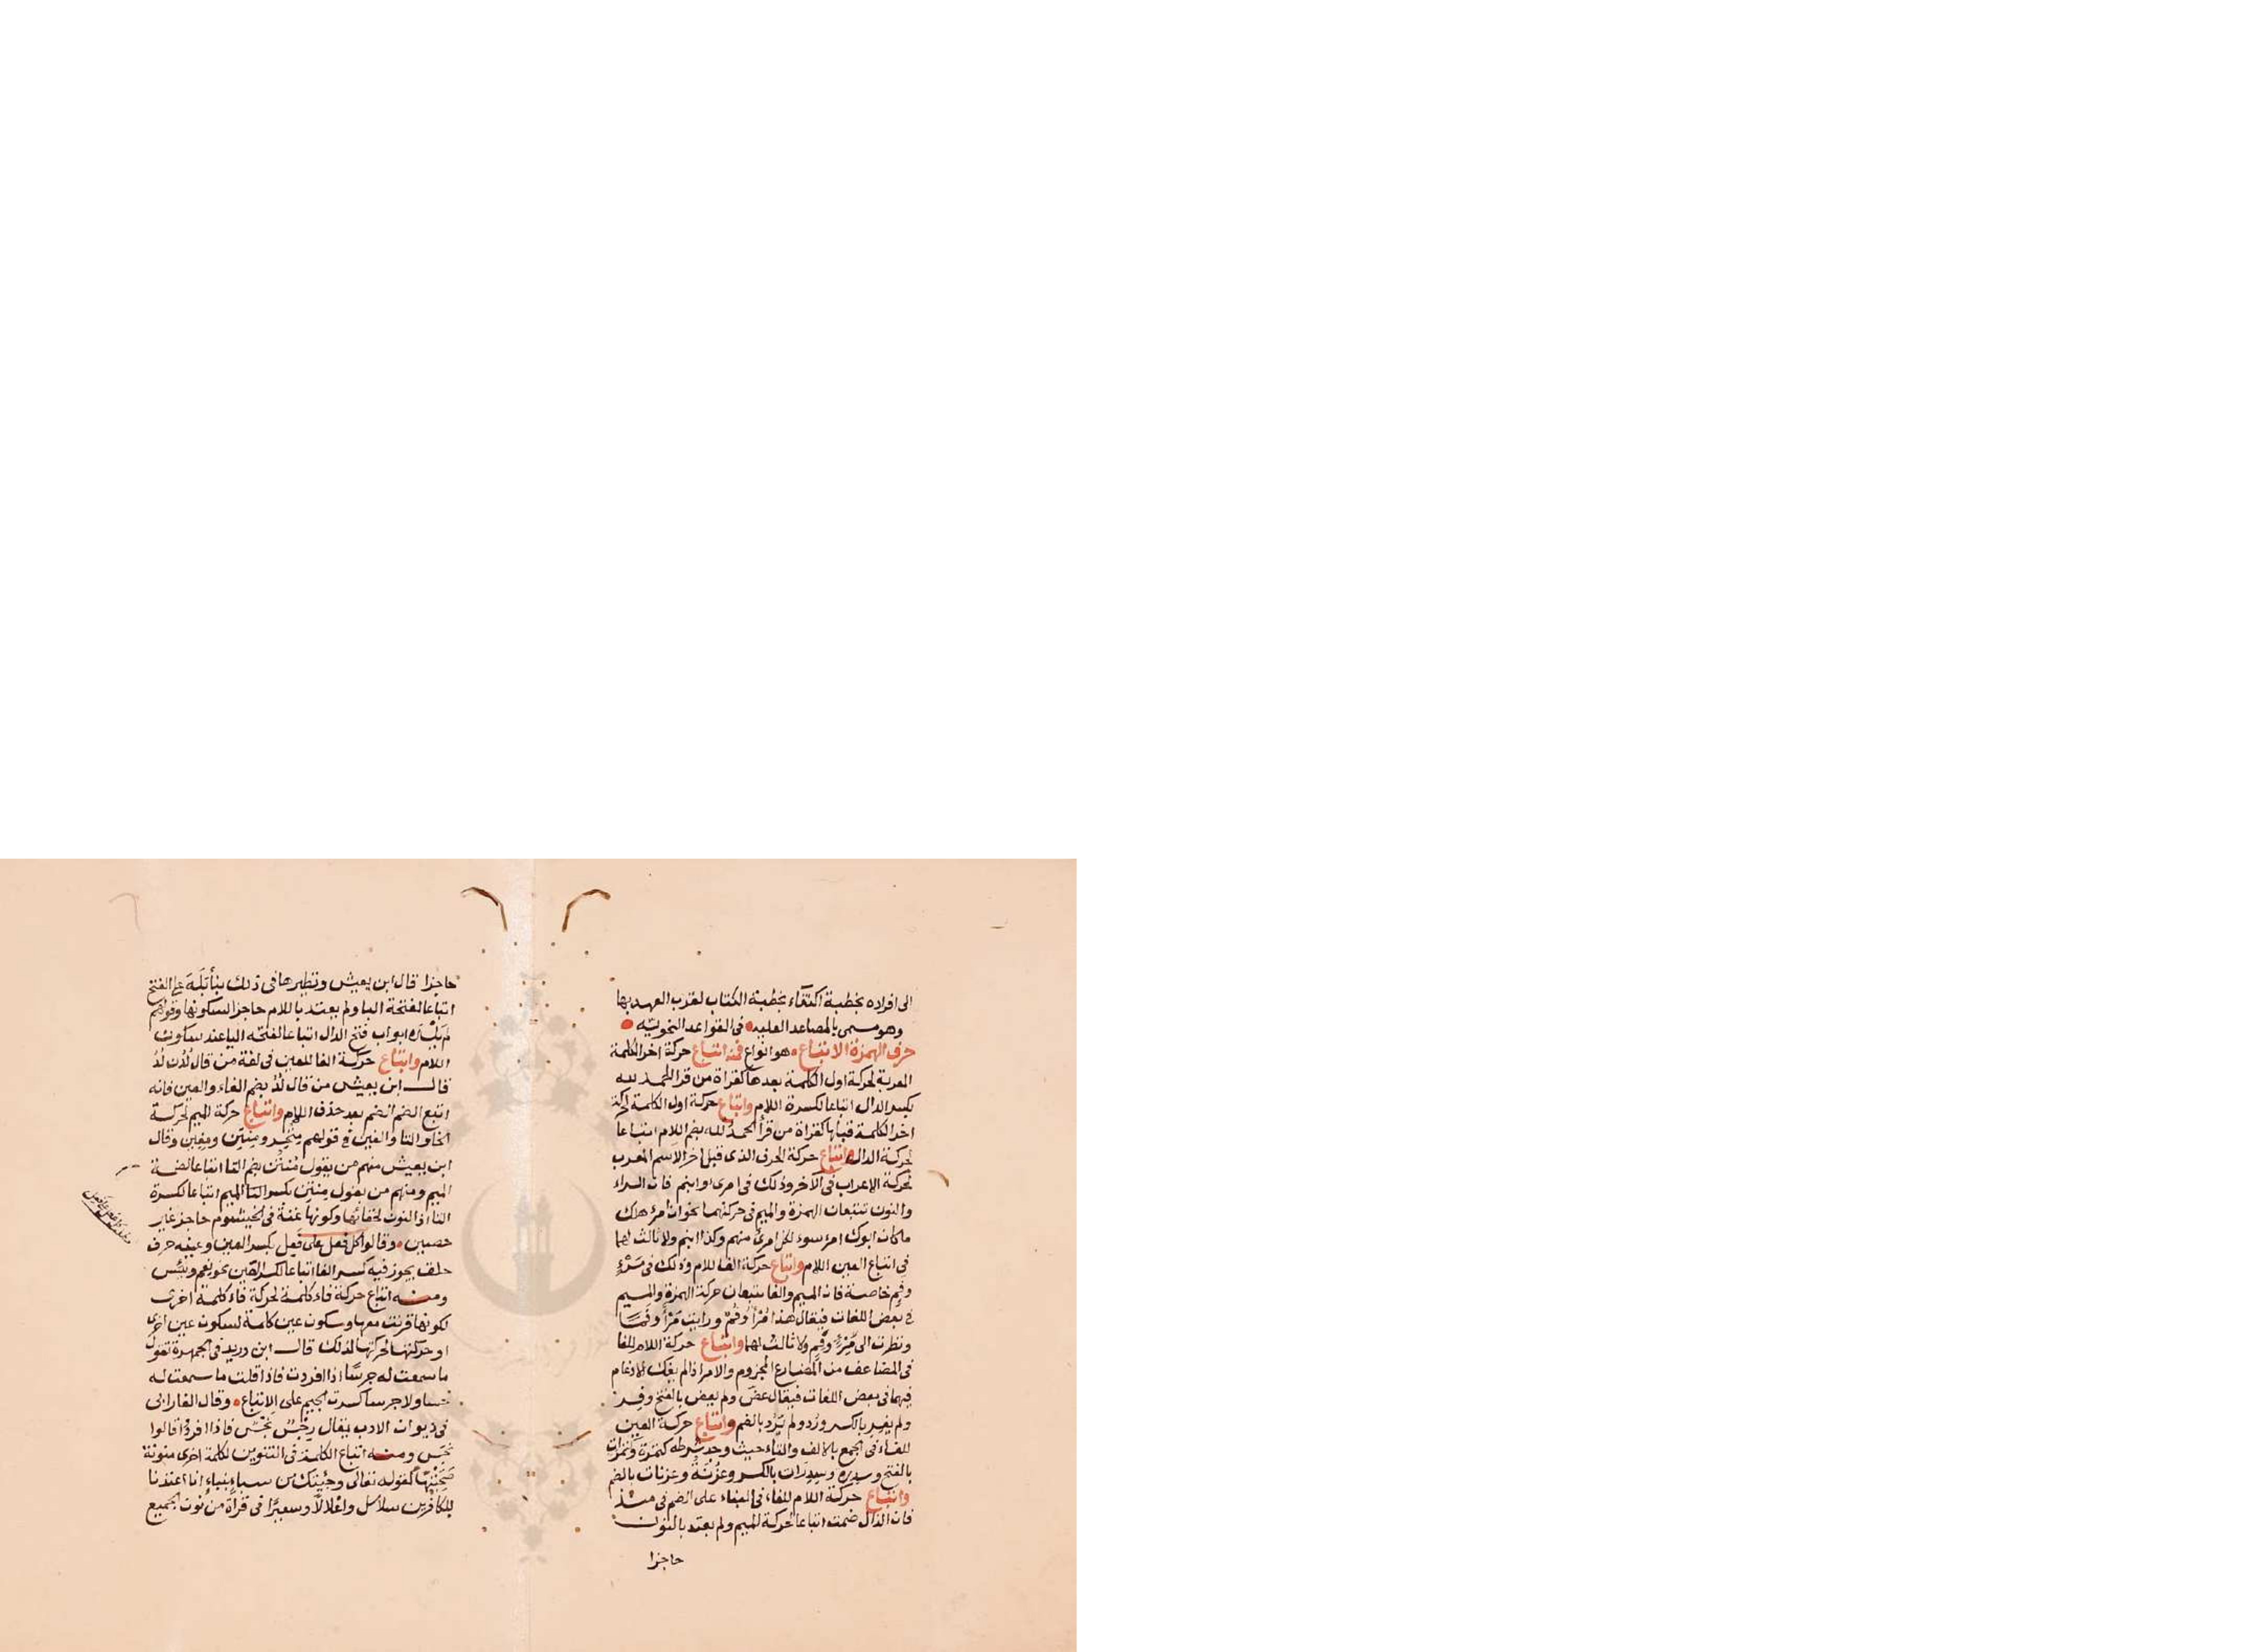 الى افراده بخطبة اكتفاء بخطبة الكتاب لقرب العهد بها
وهو مسمى بالمصاعد العليه في القواعد النحويه
حرف الهمزة الاتباع هو انواع فمنه اتباع حركة اخر الكلمة
المعربة لحركة اول الكلمة بعدها كقراة من قرا الحمد لله
بكسر الدال اتباعا لكسرة اللام واتباع حركة اول الكلمة لحركة
اخر الكلمة قبلها كقراة من قرأ الحمدُ لله بضم اللام اتباعا
لحركة الدال واتباع حركة الحرف الذى قبل اخر الاسم المعرب
لحركة الإعراب فى الآخر وذلك فى امرئ وابنم فان الراء
والنون تتبعان الهمزة والميم فى حركتهما نحو ان امرؤ هلك
ما كان ابوك امرء سوء لكل امرئ منهم وكذا ابنم ولا ثالث لهما
فى اتباع العين اللام واتباع حركة الفا للام وذلك فى مَرْءٍ
وفم خاصة فان الميم والفا يتبعان حركة الهمزة والميم
فى بعض اللغات فيقال هذا مُرْءٌ وفُمٌ ورايت مَرْأً وفَمًا
ونظرت الى مِرْءٍ وفِمٍ ولا ثالث لهما واتباع حركة اللام للفا
فى المضاعف من المضارع المجزوم والامر اذا لم يفك الادغام
فيهما فى بعض اللغات فيقال عضَّ ولم يعض بالفتح وفِرِّ
ولم يفر بالكسر ورُدُّ ولم يَرُدُّ بالضم واتباع حركة العين
للفاء فى الجمع بالالف والتاء حيث وجد شرطه كتمرة وتمرات
بالفتح وسِدرة وسِدِرات بالكسر وغرفة وغرفات بالضم
واتباع حركة اللام للفاء فى البناء على الضم فى منذ
فان الذال ضمت اتباعا لحركة الميم ولم يعتد بالنون
حاجزا
حاجزا قال ابن يعيش ونظيرها فى ذلك بناء بَلْهَ على الفتح
اتباعا لفتحة البا ولم يعتد باللام حاجزا لسكونها وقولهم
ابواب فتح الدال اتباعا لفتحة اليا عند سكون
اللام واتباع حركة الفا للعين فى لغة من قال لُدُن لُدُ
قال ابن يعيش من قال لُدُ بضم الفاء والعين فانه
اتبع الضم الضم بعد حذف اللام واتباع حركة الميم لحركة
الخاء والتا والغين فى قولهم مِنْخِر ومِنْتِن ومِغِين وقال
ابن يعيش منهم من يقول مُنْتُن بضم التا اتباعا لضمة
الميم ومنهم من يقول مِنْتِن بكسر الميم اتباعا لكسرة
التا اذ النون لخفائها وكونها غنة فى الخيشوم حاجز غير
حصين وقالوا كل فعل على فَعِل بكسر العين وعينه حرف
حلق يجوز فيه كسر الفا اتباعا لكسر العين نحو نِعِم وبِئِس
ومنه اتباع حركة فاء كلمة لحركة فاء كلمة اخرى
لكونها قرنت معها وسكون عين كلمة لسكون عين اخرى
او حركتها لحركتها كذلك قال ابن دريد فى الجمهرة تقول
ما سمعت له جرسا اذا افردت فاذا قلت ما سمعت له
حسا ولا جرسا كسرت الجيم على الاتباع وقال الفارابى
فى ديوان الادب يقال رِجْسٌ نِجْسٌ فاذا افردوا قالوا
نجس ومنه اتباع الكلمة فى التنوين لكلمة اخرى منونة
صحبتها كقوله تعالى وجئتك من سبإ بنبإ انا اعتدنا
للكافرين سلاسل واغلالا وسعيرا فى قراة من نون الجميع